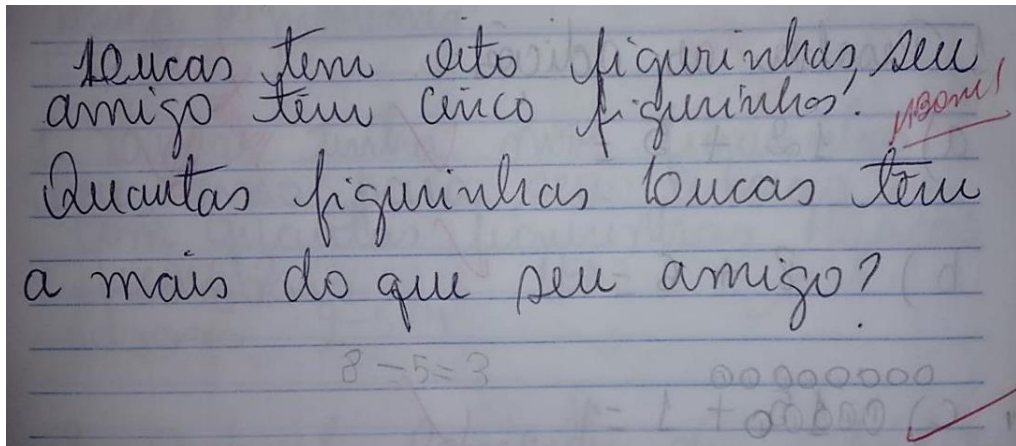 Loucas tem oito figurinhas, seu
amigo têm cinco figurinhas.
Bom!
Quantas figurinhas Loucas têm
a mais do que seu amigo?
8-5=3
00000000